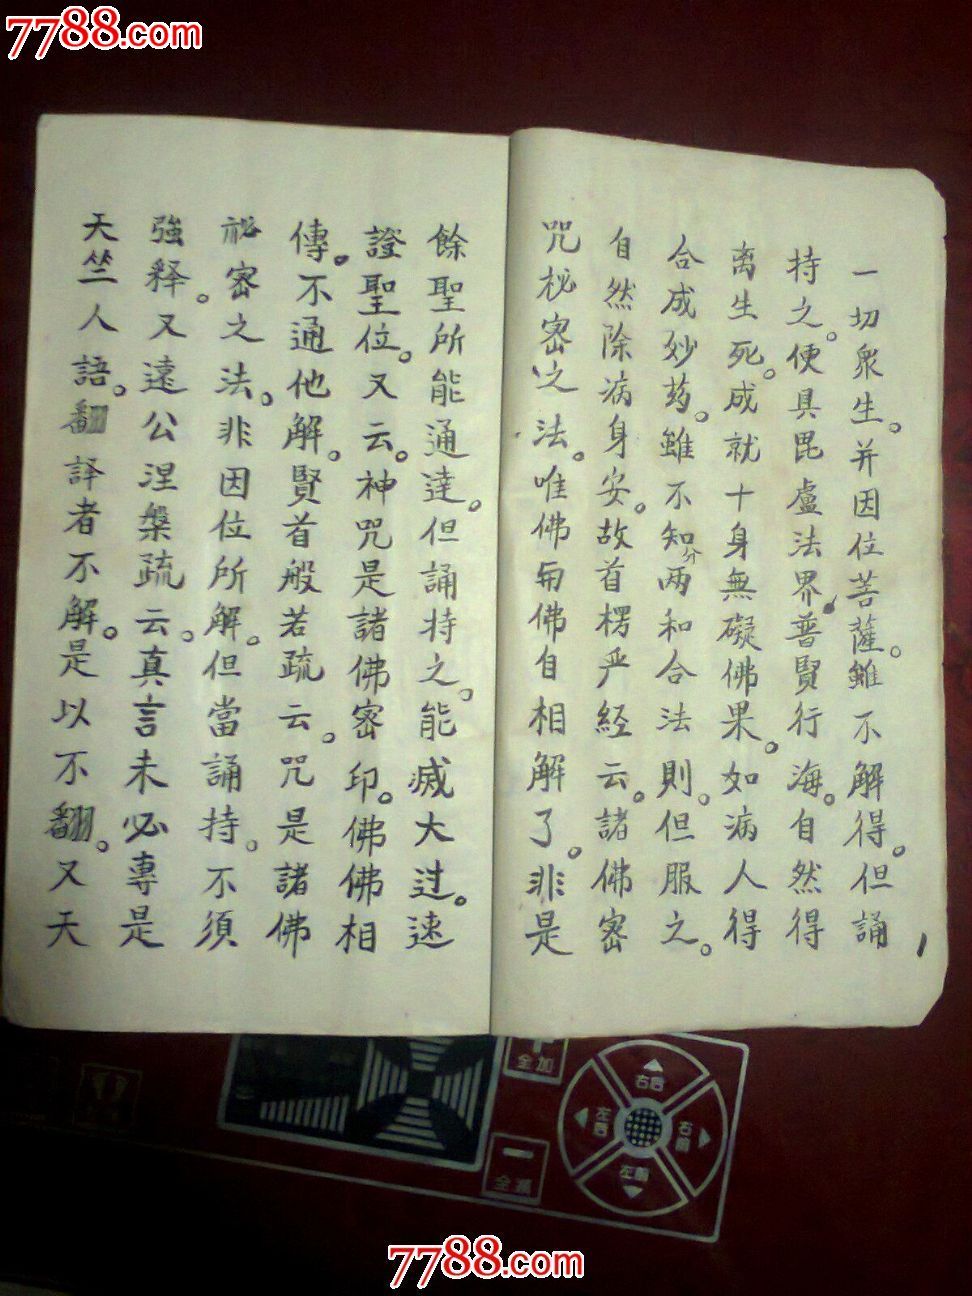 7788.com
7788.com
一切衆生。并因位菩薩。雖不解得。但誦
持之。便具毘盧法界普賢行海。自然得
离生死。成就十身無礙佛果。如病人得
合成妙药。雖不知分两和合法則。但服之。
自然除病身安。故首楞严经云。諸佛密
咒秘密之法。唯佛与佛自相解了。非是
餘聖所能通達。但誦持之。能滅大过。速
證聖位。又云。神咒是諸佛密印。佛佛相
傳。不通他解。賢首般若疏云。咒是諸佛
祕密之法。非因位所解。但當誦持。不須
強释。又遠公涅槃疏云。真言未必專是
天竺人語。翻譯者不解。是以不翻。又天
全加
右后
左后
右前
左前
全濒
7788.com